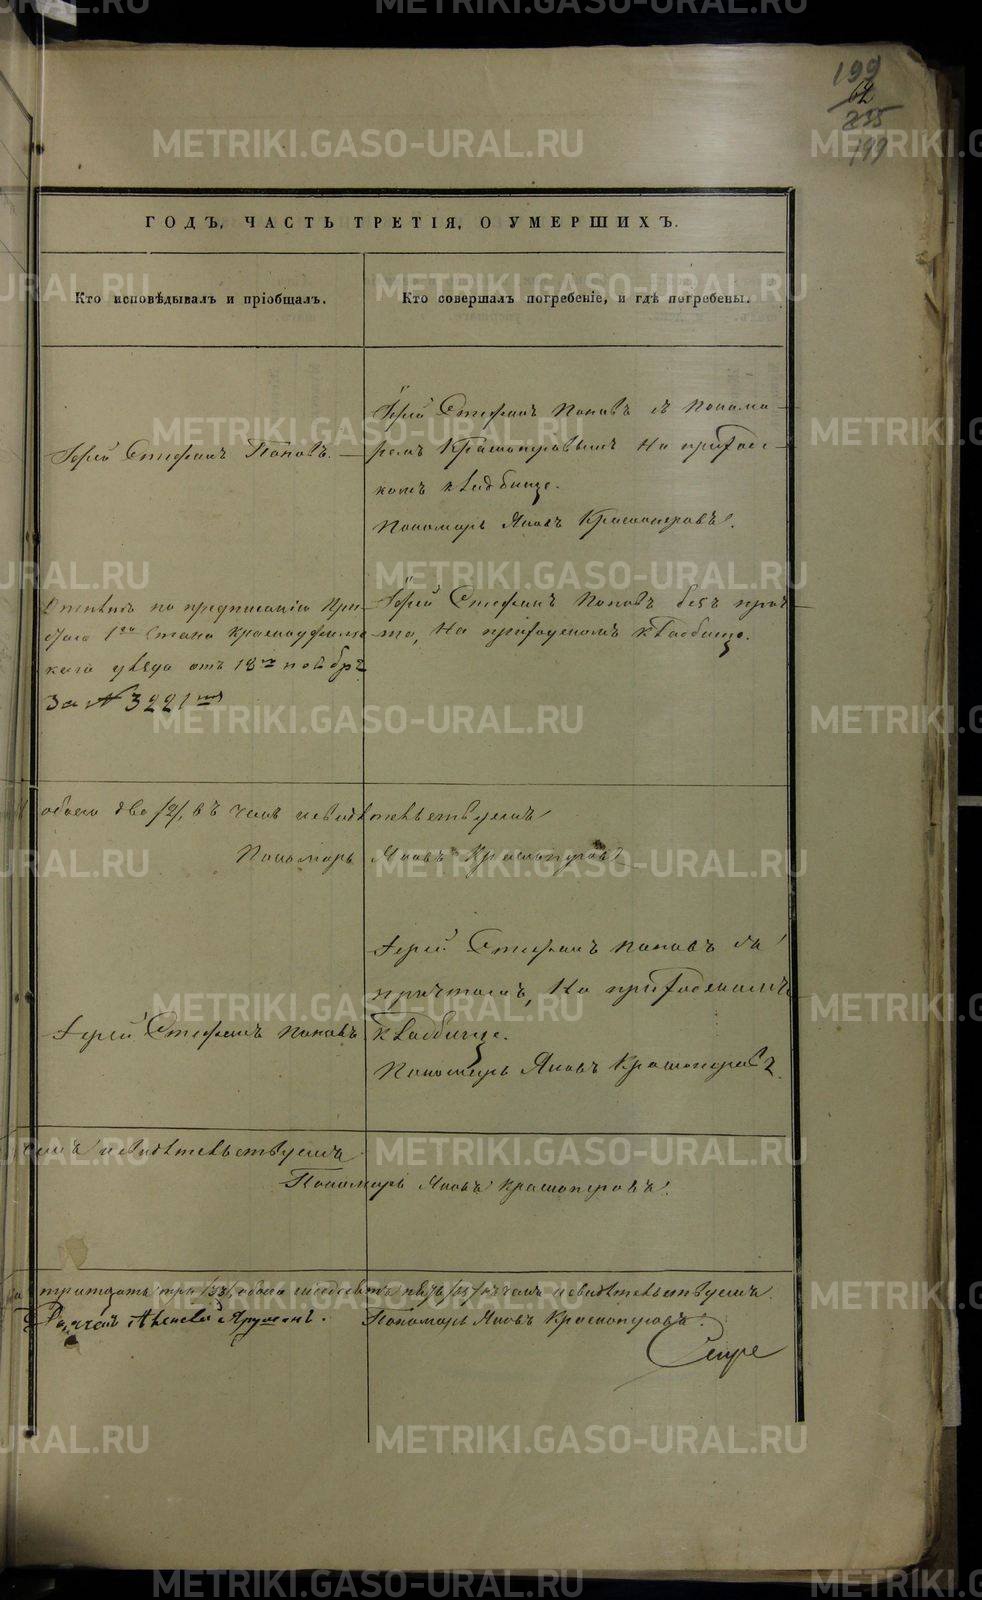 199
62
235
199
ГОДЪ, ЧАСТЬ ТРЕТІЯ, О УМЕРШИХЪ.
Кто исповѣдывалъ и пріобщалъ.
Кто совершалъ погребеніе, и гдѣ погребены.
Іерей Стефанъ Поповъ.
Іерей Стефанъ Поповъ съ Понома-
ремъ Красноперовымъ на приход-
комъ кладбище.
Пономарь Яковъ Красноперовъ.
по предписанію При-
става 1го Стана Красноуфимс-
каго уѣзда отъ 18го ноябр
За № 3221мъ
Іерей Стефанъ Поповъ безъ прич-
та, на приходскомъ кладбище.
обоего два /2/, въ чемъ и свидѣтельствуемъ
Пономарь Яковъ Красноперовъ
Іерей Стефанъ Поповъ
Іерей Стефанъ Поповъ съ
причтомъ, на приходскомъ
кладбище.
Пономарь Яковъ Красноперовъ.
чемъ и свидѣтельствуемъ
Пономарь Яковъ Красноперовъ.
тритцать три /33/, обоего въ чемъ и свидѣтельствуемъ.
Пономарь Яковъ Красноперовъ.
METRIKI.GASO-URAL.RU